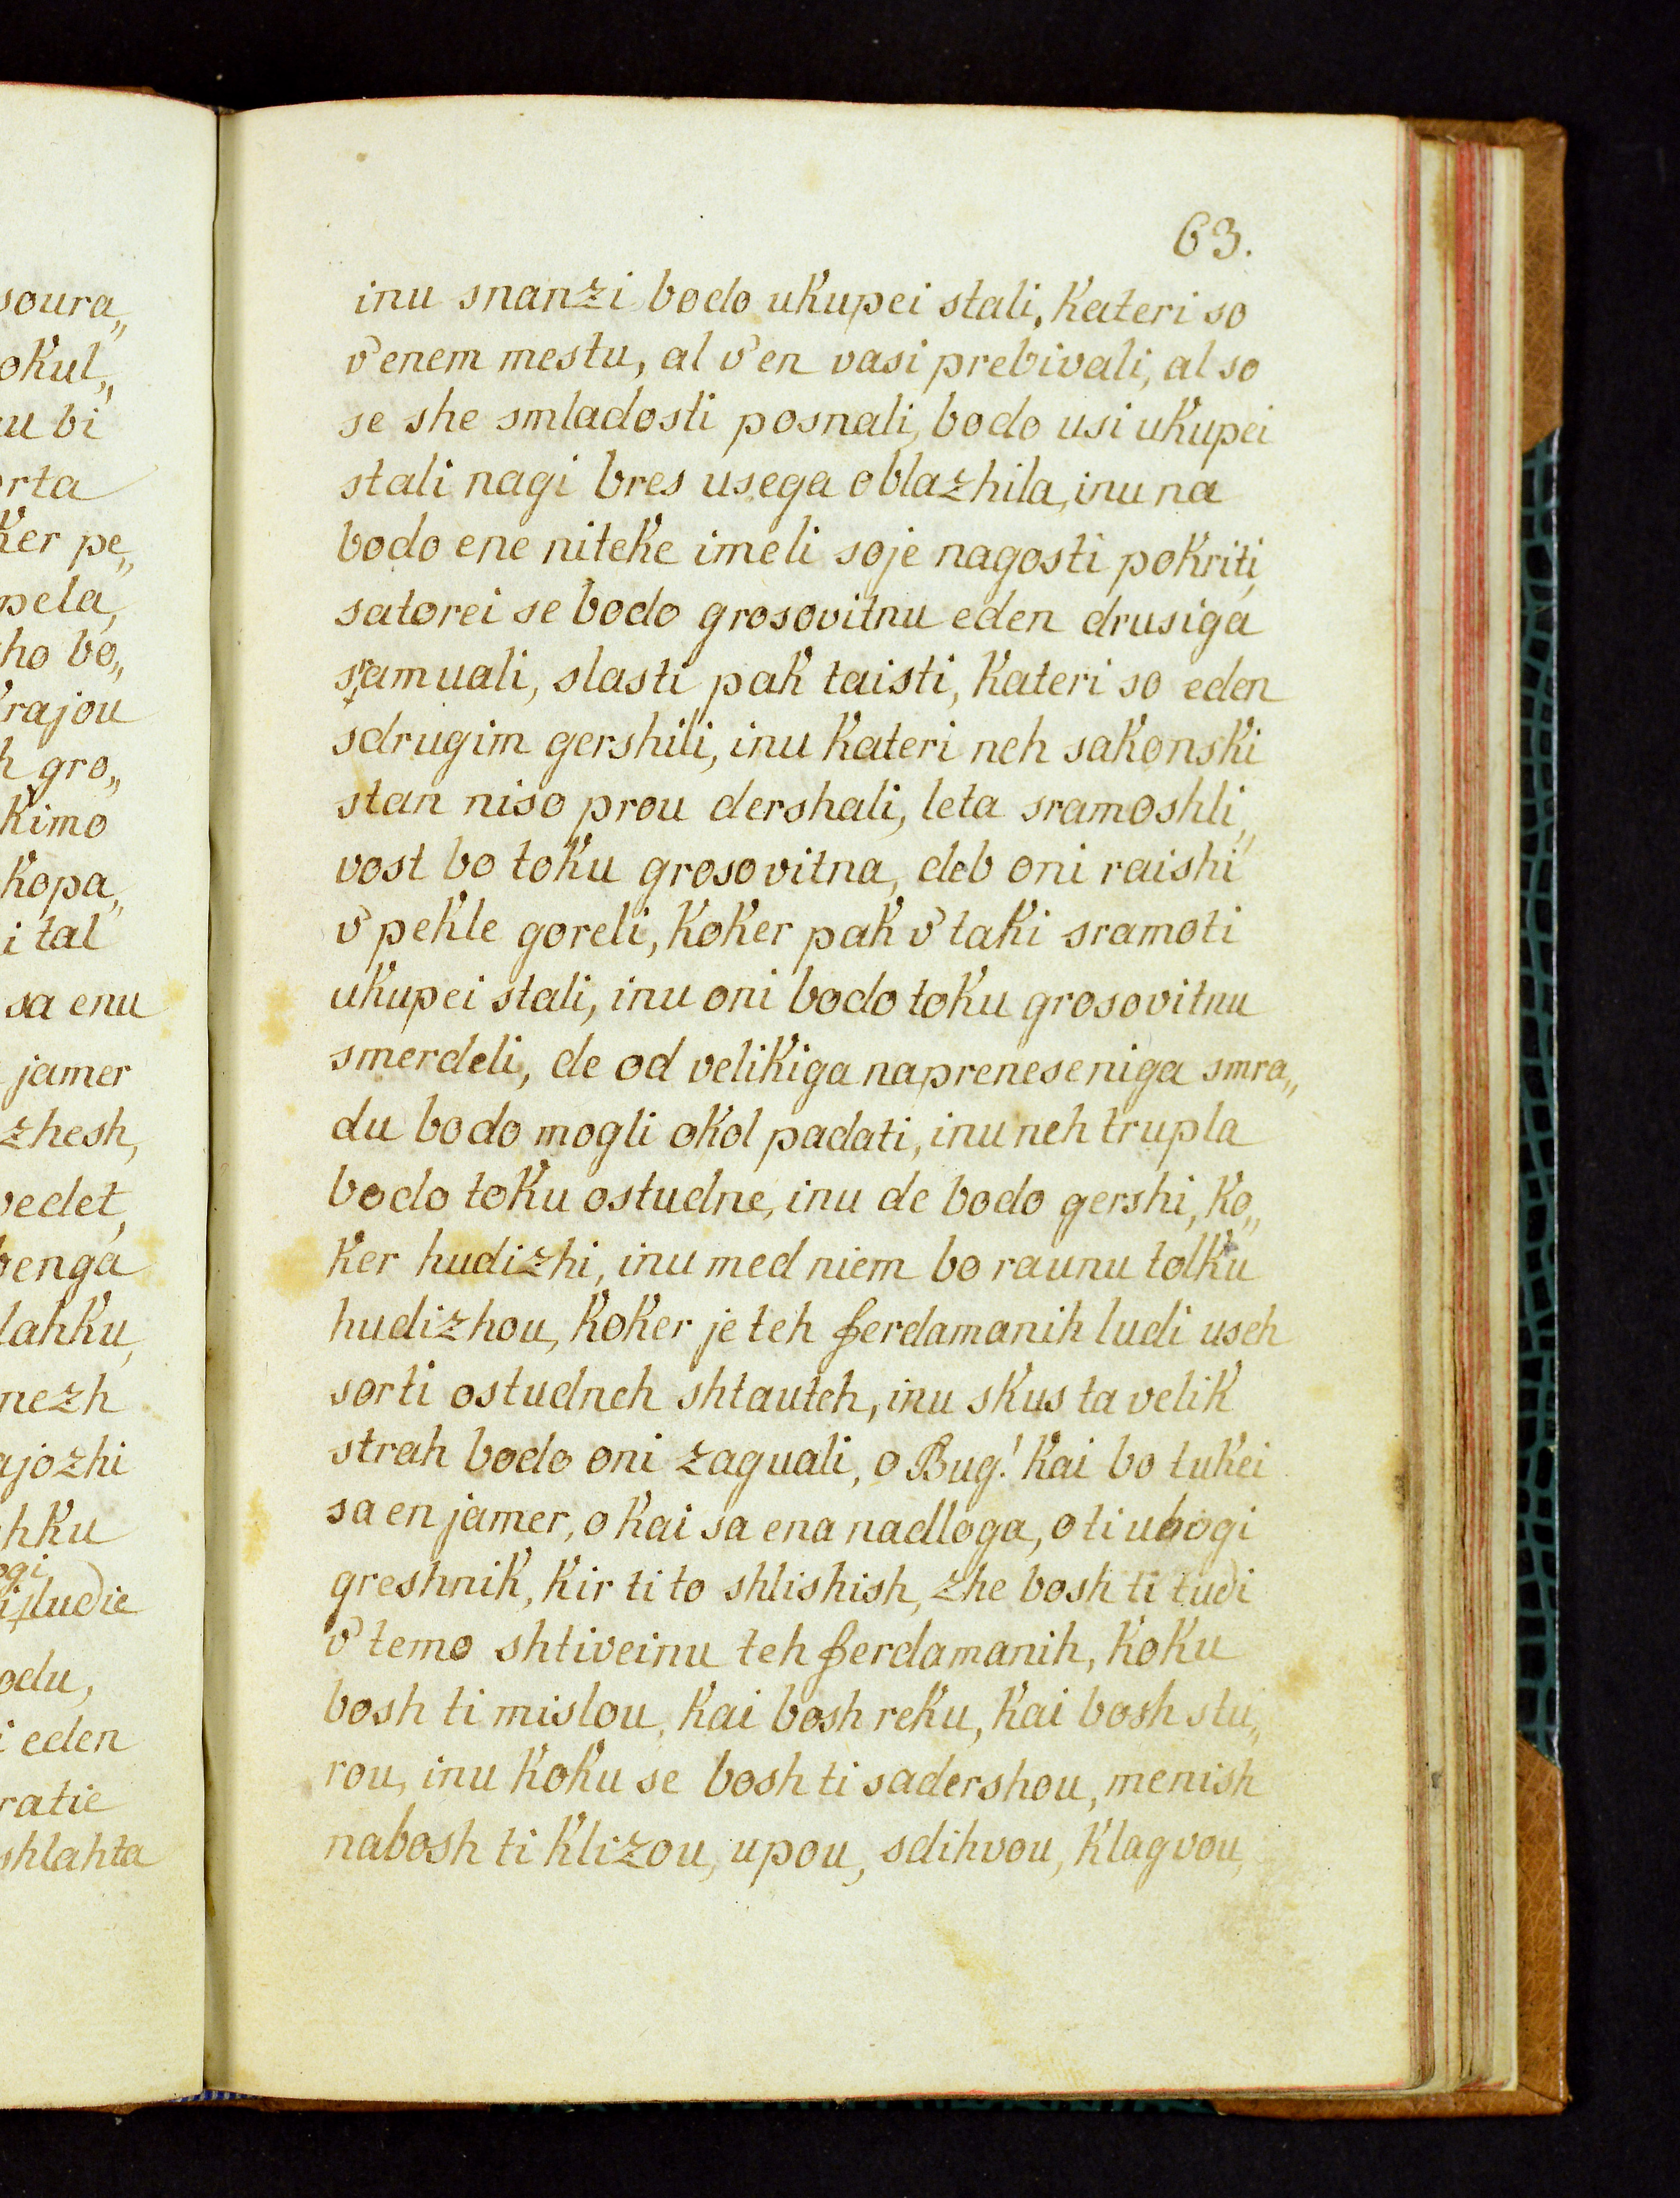 soura„
okul„
u bi
rta
ker pe„
pela,
ho bo„
krajou
h gro„
kimo
kopa„
i tal
sa enu
jamer
zhesh,
vedet,
benga
lahku,
nezh
ajozhi
hku
ogi
i ludie
odu,
i eden
ratie
shlahta
63.
inu snanzi bodo ukupei stali, kateri so
v'enem mestu, al v'en vasi prebivali, al so
se she smladosti posnali, bodo usi ukupei
stali nagi bres usega oblazhila, inu na
bodo ene niteke imeli soje nagosti pokriti,
satorei se bodo grosovitnu eden drusiga
sramuali, slasti pak taisti, kateri so eden
sdrugim gershili, inu kateri neh sakonski
stan niso prou dershali, leta sramoshli„
vost bo toku grosovitna, deb oni raishi
v'pekle goreli, koker pak v'taki sramoti
ukupei stali, inu oni bodo toku grosovitnu
smerdeli, de od velikiga napreneseniga smra„
du bodo mogli okol padati, inu neh trupla
bodo toku ostudne, inu de bodo gershi, ko„
ker hudizhi, inu med niem bo raunu tolku
hudizhou, koker je teh ferdamanih ludi useh
sorti ostudneh shtauteh, inu skus ta velik
strah bodo oni zaguali, o Bug! kai bo tukei
sa en jamer, o kai sa ena nadloga, o ti ubogi
greshnik, kir ti to shlishish, zhe bosh ti tudi
v'temo shtiveinu teh ferdamanih, koku
bosh ti mislou, kai bosh reku, kai bosh stu„
rou, inu koku se bosh ti sadershou, menish
nabosh ti klizou, upou, sdihvou, klagvou,